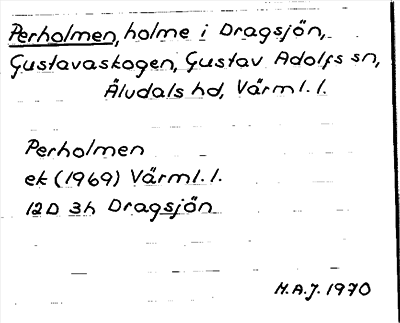 Perholmen, holme i Dragsjön,
Gustavaskogen, Gustav Adolfs sn,
Älvdals hd, Värml. l.
Perholmen
ek (1969) Värml. l.
12D 3h Dragsjön
H.A.J. 1970